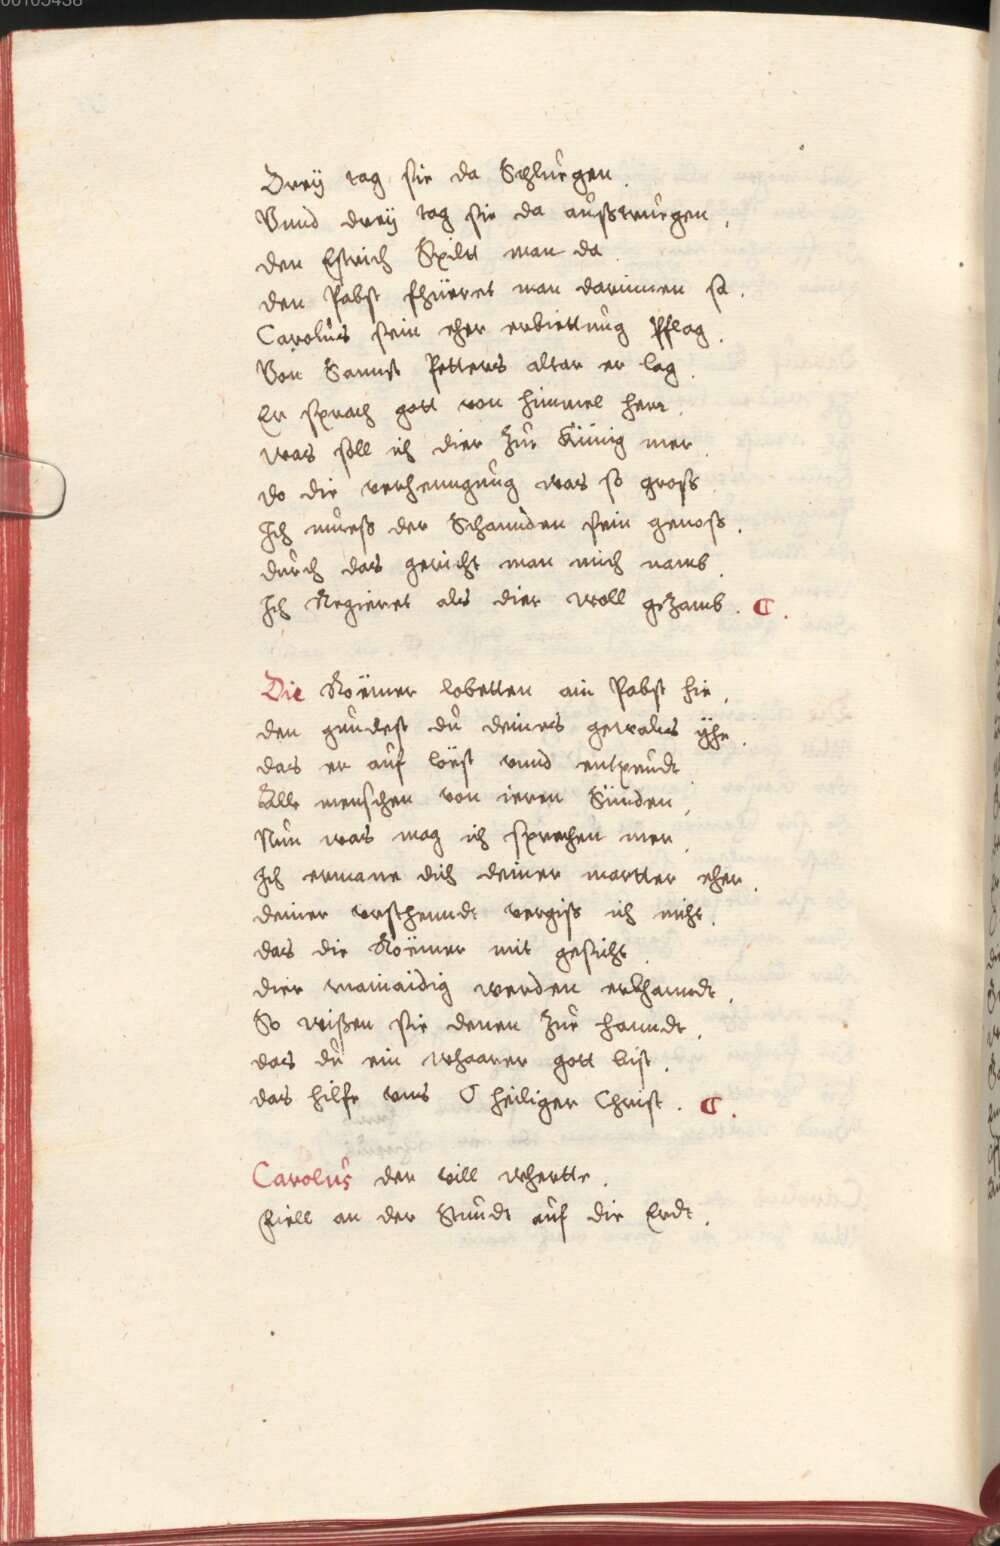 00105438
Dreÿ tag sie da Schluegen.
Vnnd dreÿ tag sie da außtruegen,
den Estrich Spilet man da.
den Pabst fhüeret man darinnen sa.
Carolus sein eher erbiettung Pflag.
Von Sannst Petters altar er lag.
Er sprach gott von himmel herr.
was soll ich dier zue Künig mer.
do die verhenngnug was so gross.
Ich mueß der Schannden sein genoss.
durch das gericht man mich namb.
Ich Regieret als dier woll gezamb. C.
Die Roëmer lobetten ain Pabst hie,
den gundest du deines gewalts ÿhe.
das er auf loëst vnnd entpundt
Alle menschen von ieren Sünden,
Nun was mag ich sprechen mer,
Ich ermane dich deiner martter eher.
deiner vrstenndt vergiss ich nicht.
das die Roëmer mit gesicht.
dier mainaidig werden erkhanndt,
So wißen sie denen zue hanndt,
das du ein whaarer gott bist.
das hilfe vns O heiliger Christ. C.
Carolus der vill whertte.
Fiell an der Stundt auf die Erdt.